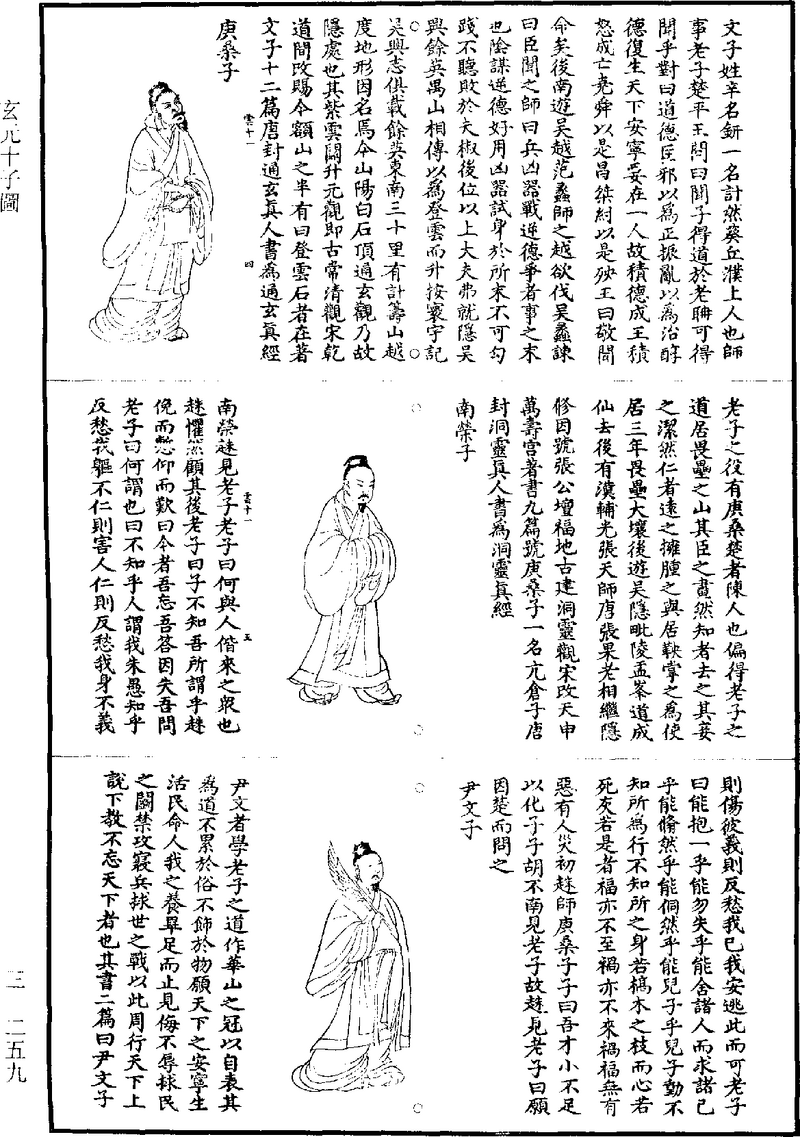 文子姓辛名鈃一名計然葵丘濮上人也師
事老子楚平王問曰聞子得道於老聃可得
聞乎對曰道德匡邪以為正振亂以為治醇
德復生天下安寧要在一人故積德成王積
怒成亡堯舜以是昌桀紂以是殃王曰敬聞
命矣後南遊吳越范蠡師之越欲伐吳蠡諫
曰臣聞之師曰兵凶器戰逆德爭者事之末
也陰謀逆德好用凶器試身於所末不可勾
踐不聽敗於夫椒後位以上大夫弗就隱吳
興餘英禺山相傳以為登雲而升按寰宇記
吳興志俱載餘英東南三十里有計籌山越
度地形因名焉今山陽白石頂通玄觀乃故
隱處也其紫雲關升元觀即古常清觀宋乾
道間改賜今額山之半有曰登雲石者在著
文子十二篇唐封通玄真人書為通玄真經
雲十一
四
庚桑子
老子之役有庚桑楚者陳人也偏得老子之
道居畏壘之山其臣之畫然知者去之其妾
之潔然仁者遠之擁腫之與居鞅掌之為使
居三年畏壘大壤後遊吳隱毗陵孟峯道成
仙去後有漢輔光張天師唐張果老相繼隱
修因號張公壇福地古建洞靈觀宋改天申
萬壽宮著書九篇號庚桑子一名亢倉子唐
封洞靈真人書為洞靈真經
南榮子
雲十一
五
南榮趎見老子老子曰何與人偕來之眾也
趎懼然顧其後老子曰子不知吾所謂乎趎
俛而慙仰而歎曰今者吾忘吾答因失吾問
老子曰何謂也曰不知乎人謂我朱愚知乎
反愁我軀不仁則害人仁則反愁我身不義
則傷彼義則反愁我已我安逃此而可老子
曰能抱一乎能勿失乎能舍諸人而求諸己
乎能翛然乎能侗然乎能兒子乎兒子動不
知所為行不知所之身若槁木之枝而心若
死灰若是者福亦不至禍亦不來禍福無有
惡有人災初趎師庚桑子子曰吾才小不足
以化子子胡不南見老子故趎見老子曰願
因楚而問之
尹文子
尹文者學老子之道作華山之冠以自表其
為道不累於俗不飾於物願天下之安寧生
活民命人我之養畢足而止見侮不辱救民
之鬬禁攻寢兵救世之戰以此周行天下上
說下教不忘天下者也其書二篇曰尹文子
玄元十子圖
三 二五九